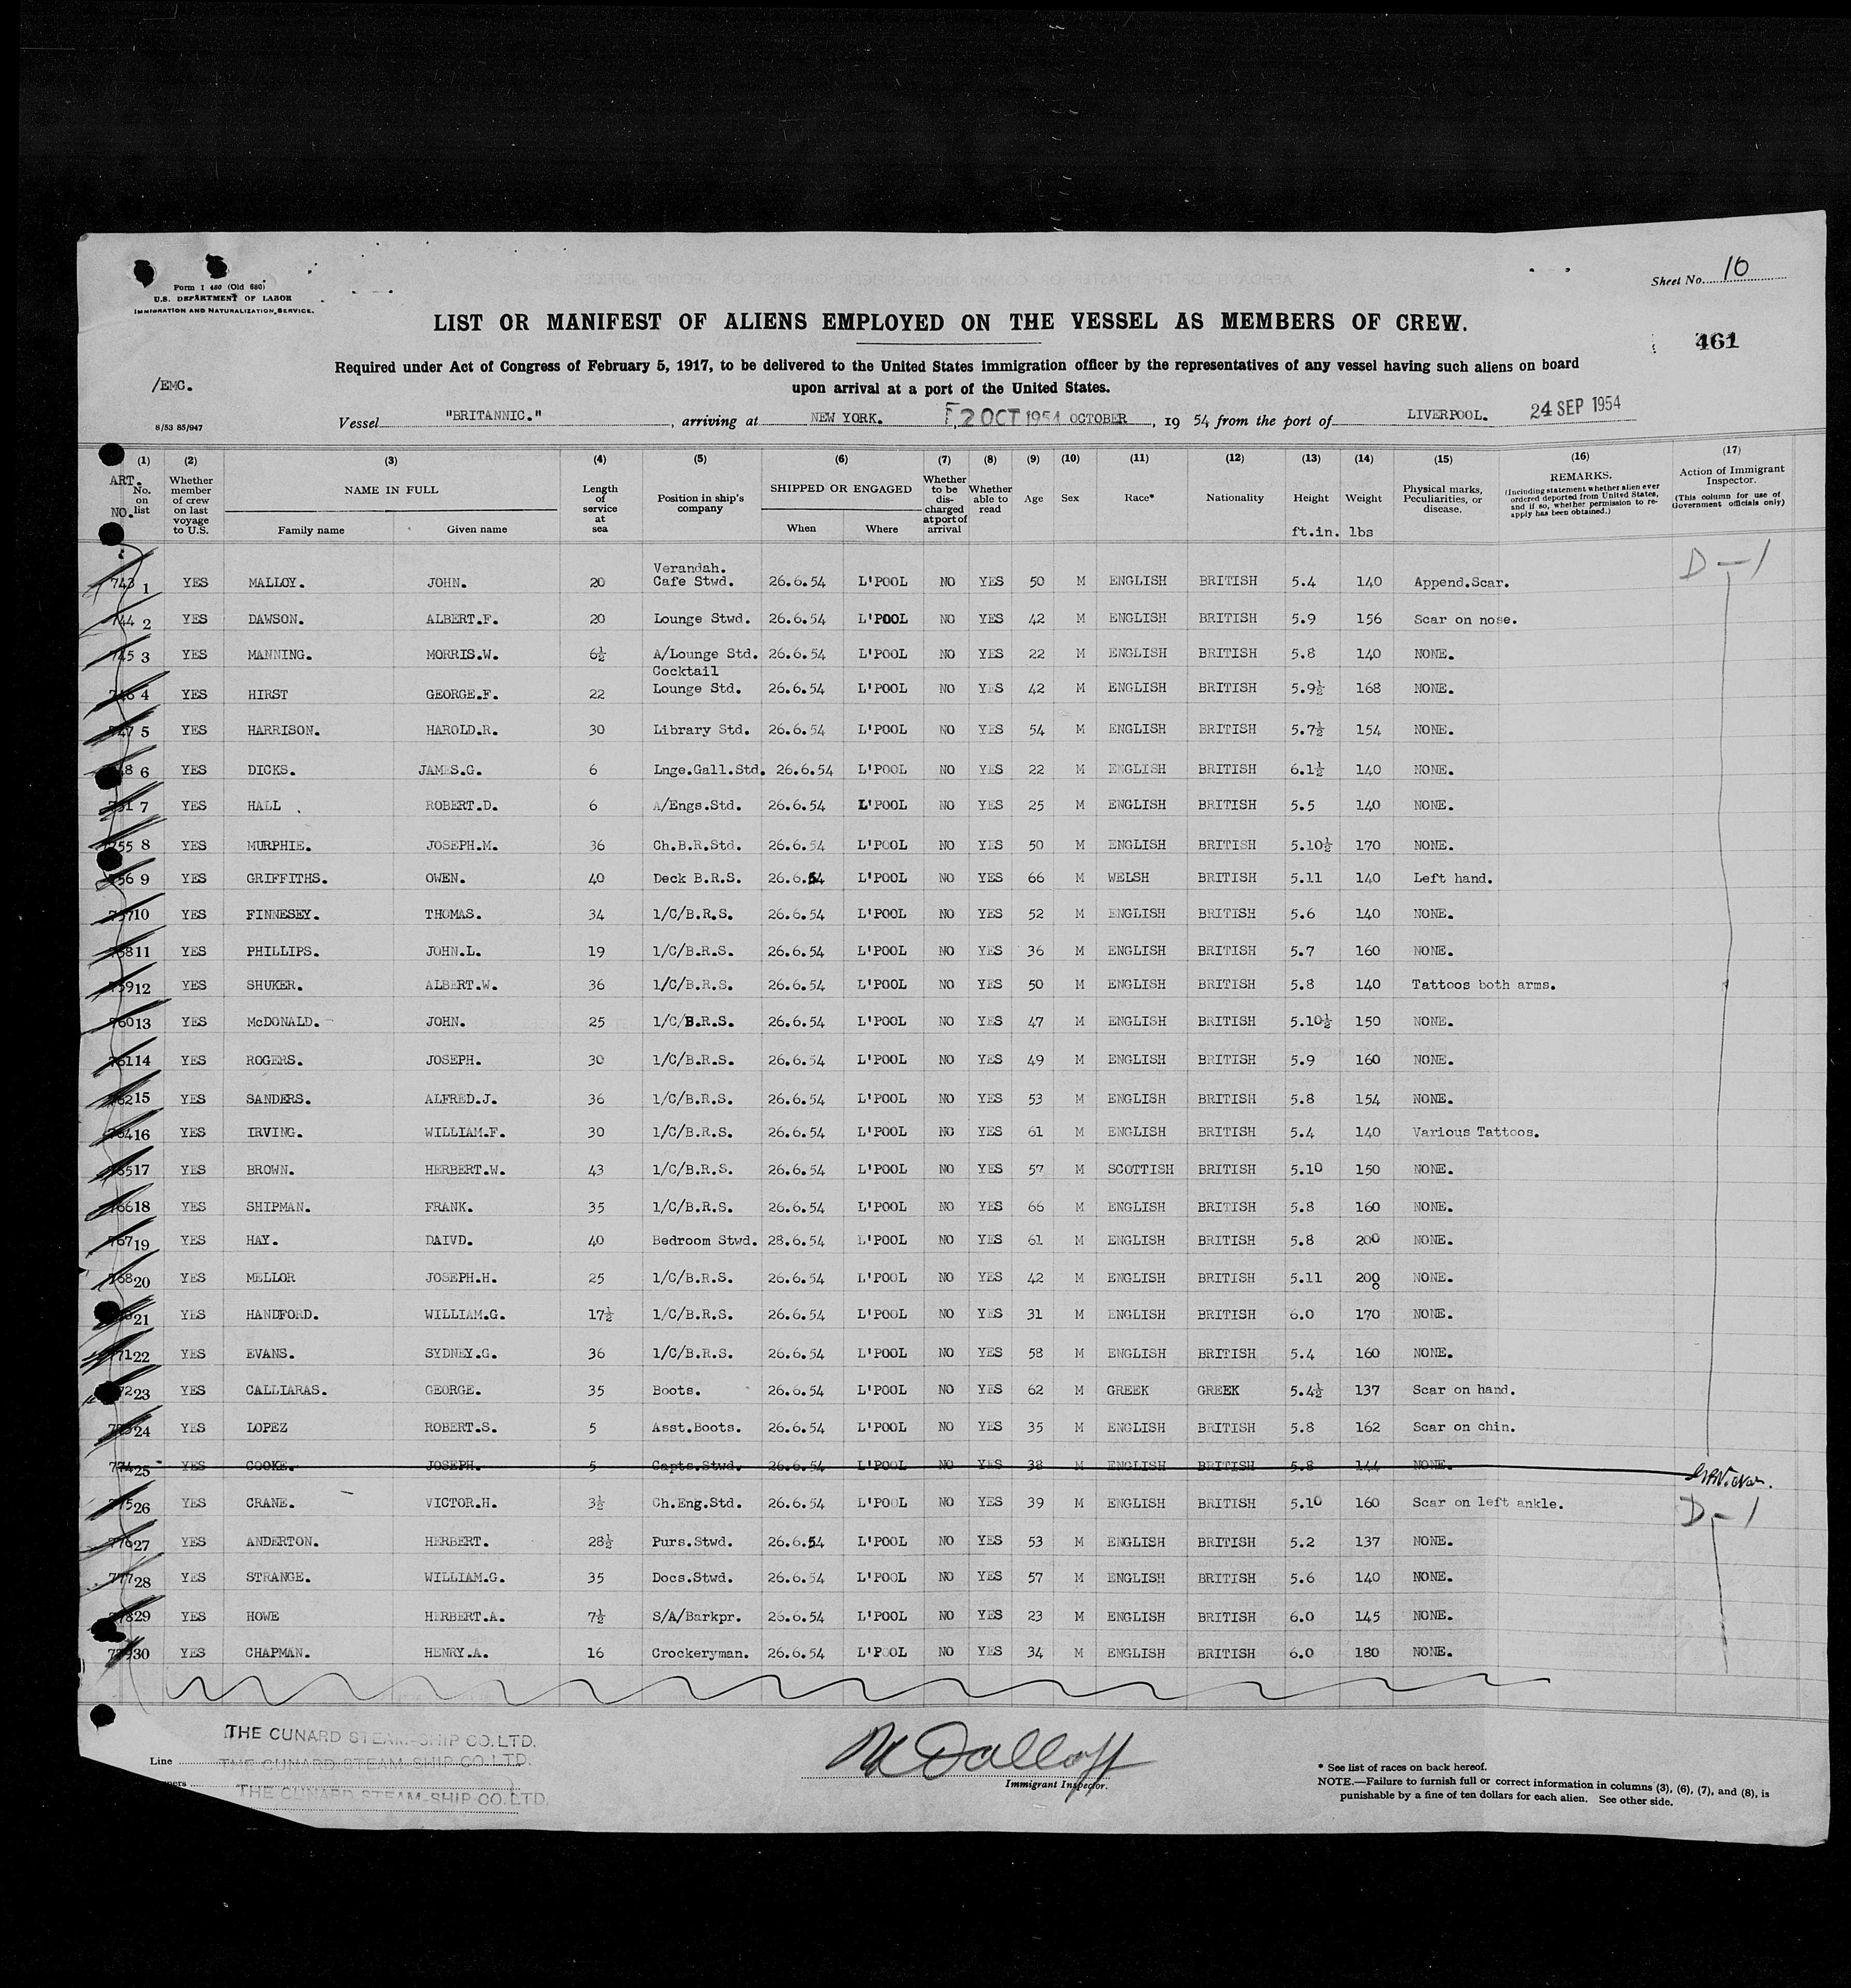 Form I 480 (Old 680)
U.S. DEPARTMENT OF LABOR
IMMIGRATION AND NATURALIZATION SERVICE.
Sheet No. 10
LIST OR MANIFEST OF ALIENS EMPLOYED ON THE VESSEL AS MEMBERS OF CREW.
461
Required under Act of Congress of February 5, 1917, to be delivered to the United States immigration officer by the representatives of any vessel having such aliens on board
upon arrival at a port of the United States.
/EMC.
8/53 85/947
Vessel "BRITANNIC.", arriving at NEW YORK. 2 OCT 1954 OCTOBER, 19 54 from the port of LIVERPOOL. 24 SEP 1954
(1) (2) (3) (4) (5) (6) (7) (8) (9) (10) (11) (12) (13) (14) (15) (16) (17)
ART. NO. No. on list
Whether member of crew on last voyage to U.S.
NAME IN FULL
Family name Given name
Length of service at sea
Position in ship's company
SHIPPED OR ENGAGED
When Where
Whether to be discharged at port of arrival
Whether able to read
Age Sex Race* Nationality Height Weight
ft.in. lbs
Physical marks, Peculiarities, or disease.
REMARKS.
(Including statement whether alien ever ordered deported from United States, and if so, whether permission to re-apply has been obtained.)
Action of Immigrant Inspector.
(This column for use of Government officials only)
743 1 YES MALLOY. JOHN. 20 Verandah. Cafe Stwd. 26.6.54 L'POOL NO YES 50 M ENGLISH BRITISH 5.4 140 Append.Scar. D-1
744 2 YES DAWSON. ALBERT.F. 20 Lounge Stwd. 26.6.54 L'POOL NO YES 42 M ENGLISH BRITISH 5.9 156 Scar on nose.
745 3 YES MANNING. MORRIS.W. 6½ A/Lounge Std. 26.6.54 L'POOL NO YES 22 M ENGLISH BRITISH 5.8 140 NONE.
746 4 YES HIRST GEORGE.F. 22 Cocktail Lounge Std. 26.6.54 L'POOL NO YES 42 M ENGLISH BRITISH 5.9½ 168 NONE.
747 5 YES HARRISON. HAROLD.R. 30 Library Std. 26.6.54 L'POOL NO YES 54 M ENGLISH BRITISH 5.7½ 154 NONE.
6 YES DICKS. JAMES.G. 6 Lnge.Gall.Std. 26.6.54 L'POOL NO YES 22 M ENGLISH BRITISH 6.1½ 140 NONE.
751 7 YES HALL. ROBERT.D. 6 A/Engs.Std. 26.6.54 L'POOL NO YES 25 M ENGLISH BRITISH 5.5 140 NONE.
755 8 YES MURPHIE. JOSEPH.M. 36 Ch.B.R.Std. 26.6.54 L'POOL NO YES 50 M ENGLISH BRITISH 5.10½ 170 NONE.
756 9 YES GRIFFITHS. OWEN. 40 Deck B.R.S. 26.6.54 L'POOL NO YES 66 M WELSH BRITISH 5.11 140 Left hand.
757 10 YES FINNESEY. THOMAS. 34 1/C/B.R.S. 26.6.54 L'POOL NO YES 52 M ENGLISH BRITISH 5.6 140 NONE.
758 11 YES PHILLIPS. JOHN.L. 19 1/C/B.R.S. 26.6.54 L'POOL NO YES 36 M ENGLISH BRITISH 5.7 160 NONE.
759 12 YES SHUKER. ALBERT.W. 36 1/C/B.R.S. 26.6.54 L'POOL NO YES 50 M ENGLISH BRITISH 5.8 140 Tattoos both arms.
760 13 YES McDONALD. JOHN. 25 1/C/B.R.S. 26.6.54 L'POOL NO YES 47 M ENGLISH BRITISH 5.10½ 150 NONE.
761 14 YES ROGERS. JOSEPH. 30 1/C/B.R.S. 26.6.54 L'POOL NO YES 49 M ENGLISH BRITISH 5.9 160 NONE.
762 15 YES SANDERS. ALFRED.J. 36 1/C/B.R.S. 26.6.54 L'POOL NO YES 53 M ENGLISH BRITISH 5.8 154 NONE.
764 16 YES IRVING. WILLIAM.F. 30 1/C/B.R.S. 26.6.54 L'POOL NO YES 61 M ENGLISH BRITISH 5.4 140 Various Tattoos.
765 17 YES BROWN. HERBERT.W. 43 1/C/B.R.S. 26.6.54 L'POOL NO YES 57 M SCOTTISH BRITISH 5.10 150 NONE.
766 18 YES SHIPMAN. FRANK. 35 1/C/B.R.S. 26.6.54 L'POOL NO YES 66 M ENGLISH BRITISH 5.8 160 NONE.
767 19 YES HAY. DAIVD. 40 Bedroom Stwd. 28.6.54 L'POOL NO YES 61 M ENGLISH BRITISH 5.8 200 NONE.
768 20 YES MELLOR JOSEPH.H. 25 1/C/B.R.S. 26.6.54 L'POOL NO YES 42 M ENGLISH BRITISH 5.11 200 NONE.
21 YES HANDFORD. WILLIAM.G. 17½ 1/C/B.R.S. 26.6.54 L'POOL NO YES 31 M ENGLISH BRITISH 6.0 170 NONE.
771 22 YES EVANS. SYDNEY.G. 36 1/C/B.R.S. 26.6.54 L'POOL NO YES 58 M ENGLISH BRITISH 5.4 160 NONE.
23 YES CALLIARAS. GEORGE. 35 Boots. 26.6.54 L'POOL NO YES 62 M GREEK GREEK 5.4½ 137 Scar on hand.
773 24 YES LOPEZ ROBERT.S. 5 Asst.Boots. 26.6.54 L'POOL NO YES 35 M ENGLISH BRITISH 5.8 162 Scar on chin.
774 25 YES COOKE. JOSEPH. 5 Capts.Stwd. 26.6.54 L'POOL NO YES 38 M ENGLISH BRITISH 5.8 144 NONE.
775 26 YES CRANE. VICTOR.H. 3½ Ch.Eng.Std. 26.6.54 L'POOL NO YES 39 M ENGLISH BRITISH 5.10 160 Scar on left ankle. D-1
776 27 YES ANDERTON. HERBERT. 28½ Purs.Stwd. 26.6.54 L'POOL NO YES 53 M ENGLISH BRITISH 5.2 137 NONE.
777 28 YES STRANGE. WILLIAM.G. 35 Docs.Stwd. 26.6.54 L'POOL NO YES 57 M ENGLISH BRITISH 5.6 140 NONE.
778 29 YES HOWE HERBERT.A. 7½ S/A/Barkpr. 26.6.54 L'POOL NO YES 23 M ENGLISH BRITISH 6.0 145 NONE.
779 30 YES CHAPMAN. HENRY.A. 16 Crockeryman. 26.6.54 L'POOL NO YES 34 M ENGLISH BRITISH 6.0 180 NONE.
THE CUNARD STEAM-SHIP CO. LTD.
Line THE CUNARD STEAM-SHIP CO. LTD.
THE CUNARD STEAM-SHIP CO. LTD.
Immigrant Inspector.
* See list of races on back hereof.
NOTE.—Failure to furnish full or correct information in columns (3), (6), (7), and (8), is
punishable by a fine of ten dollars for each alien. See other side.